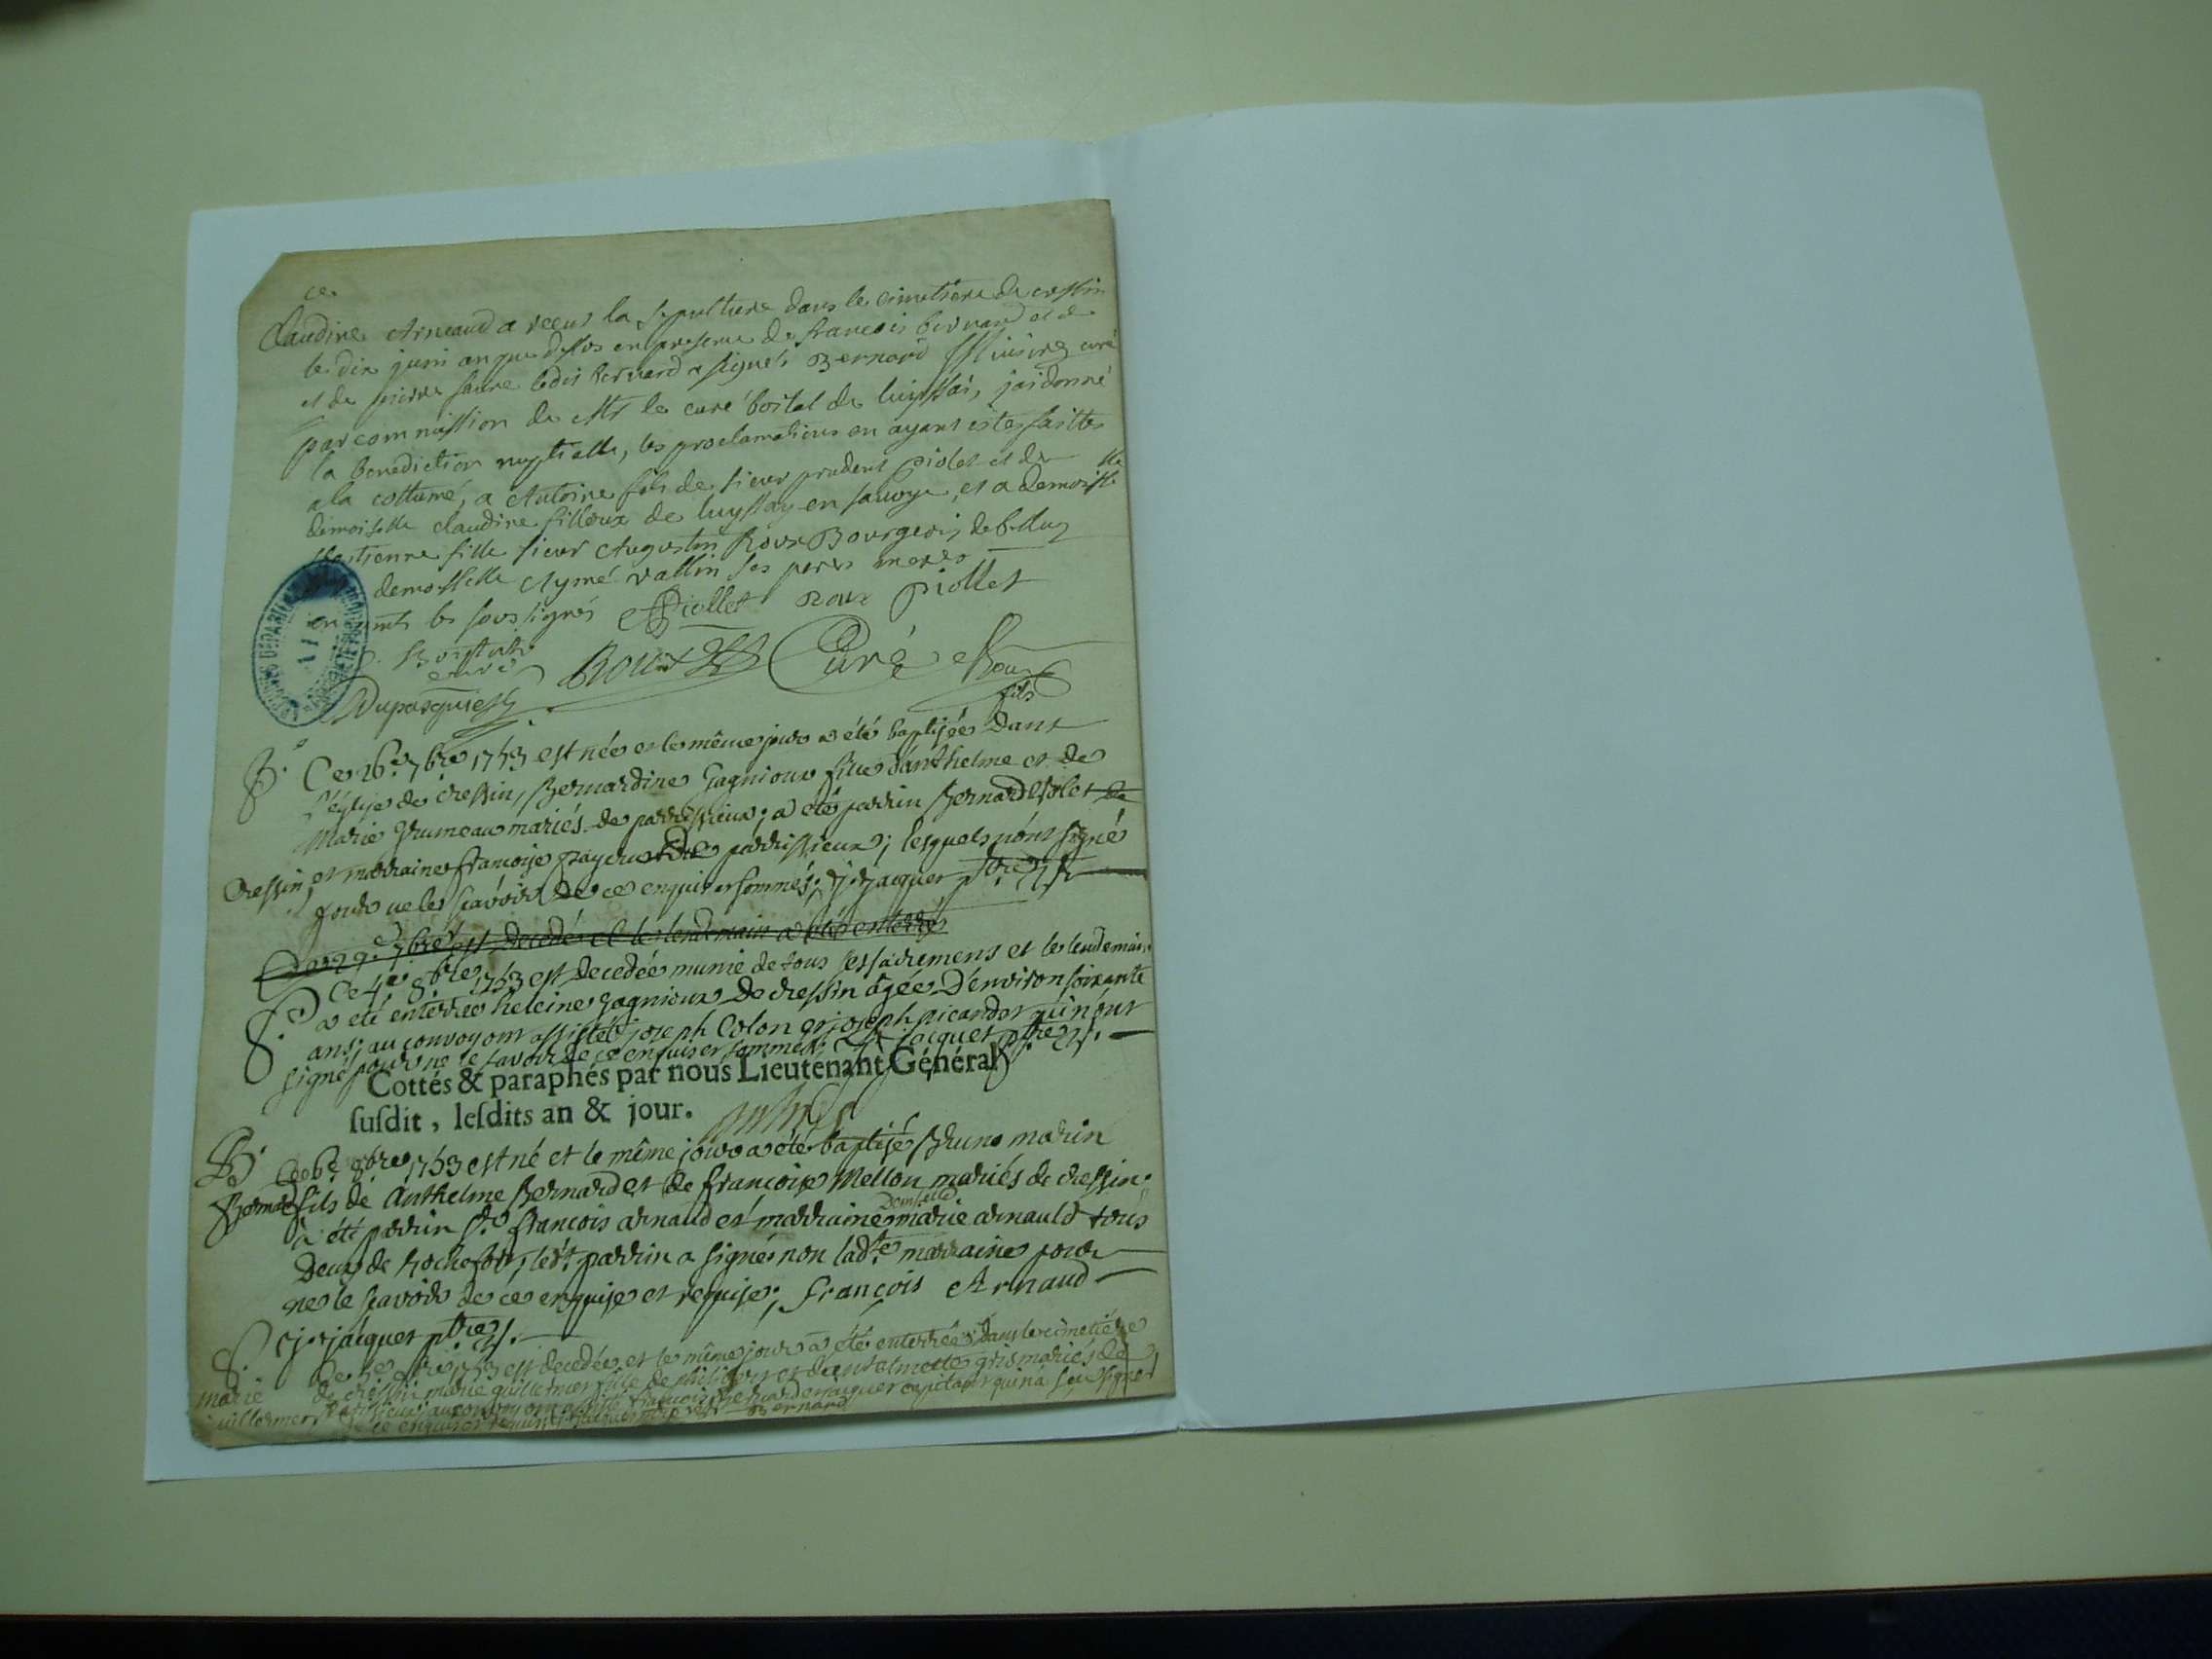 ce
Claudine Arneaud a receu la sepulture dans le cimetiere de cressin
le dix juin an que dessus en presence de francois bernard et de
et de pierre faure ledit bernard a signé Bernard curé
par commission de Mr le curé bostal de luissai, jai donné
la benediction nuptialle, les proclamations en ayant estes faittes
a la cottumé, a Antoine fils de sieur prudent piolet et de
demoiselle claudine filloux de luyssay en savoye, et a demoiselle
fille sieur Augustin Roux Bourgeois de belley
demosselle Aymé vallin ses peres meres
les soussignés Piollet Roux piollet
curé
Dupasquier Roux Curé Roux
fils
B. Ce 26e 7bre 1753 est née et le même jour a été baptisée dans
l'église de cressin, Bernardine Gagnioux fille d'anthelme et de
Marie Grumeau mariés de parrissieux; a été parrin Bernard de
Cressin, et marraine francoise de parrissieux; lesquels n'ont signé
pour ne les scavoir de ce enquis et sommés; J. Jacquet ptre
Ce 29e 7bre est decedé et le lendemain a été enterré
S. Ce 4e 8bre 1753 est decedée munie de tous ses sacremens et le lendemain
a été enterrée heleine gagnioux de cressin âgée d'environ soixante
ans; au convoy ont assistés joseph Colon et joseph picardot qui n'ont
signé pour ne le savoir de ce enquis et sommés; J. Jacquet ptre
Cottés & paraphés par nous Lieutenant Général
susdit, lesdits an & jour.
B. Ce 6e 8bre 1753 est né et le même jour a été baptisé Bruno marin
Bernard fils de Anthelme Bernard et de francoise Mellon mariés de cressin.
a été parrin Sr. francois arnaud et marraine Demselle marie arnauld tous
Deux de Rochefort, ledt. parrin a signé non ladte. marraine pour
ne le scavoir de ce enquise et requise; françois Arnaud
J. Jacquet ptre
S. 1753 est decedée et le même jour a été enterrée dans le cimetière
marie de cressin marie guillermet fille de et d'antelmette gris mariés de
guillermet parrissieux; au convoy ont assisté francois Bernard et qui n'a sçu signer
de ce enquis et requis Bernard